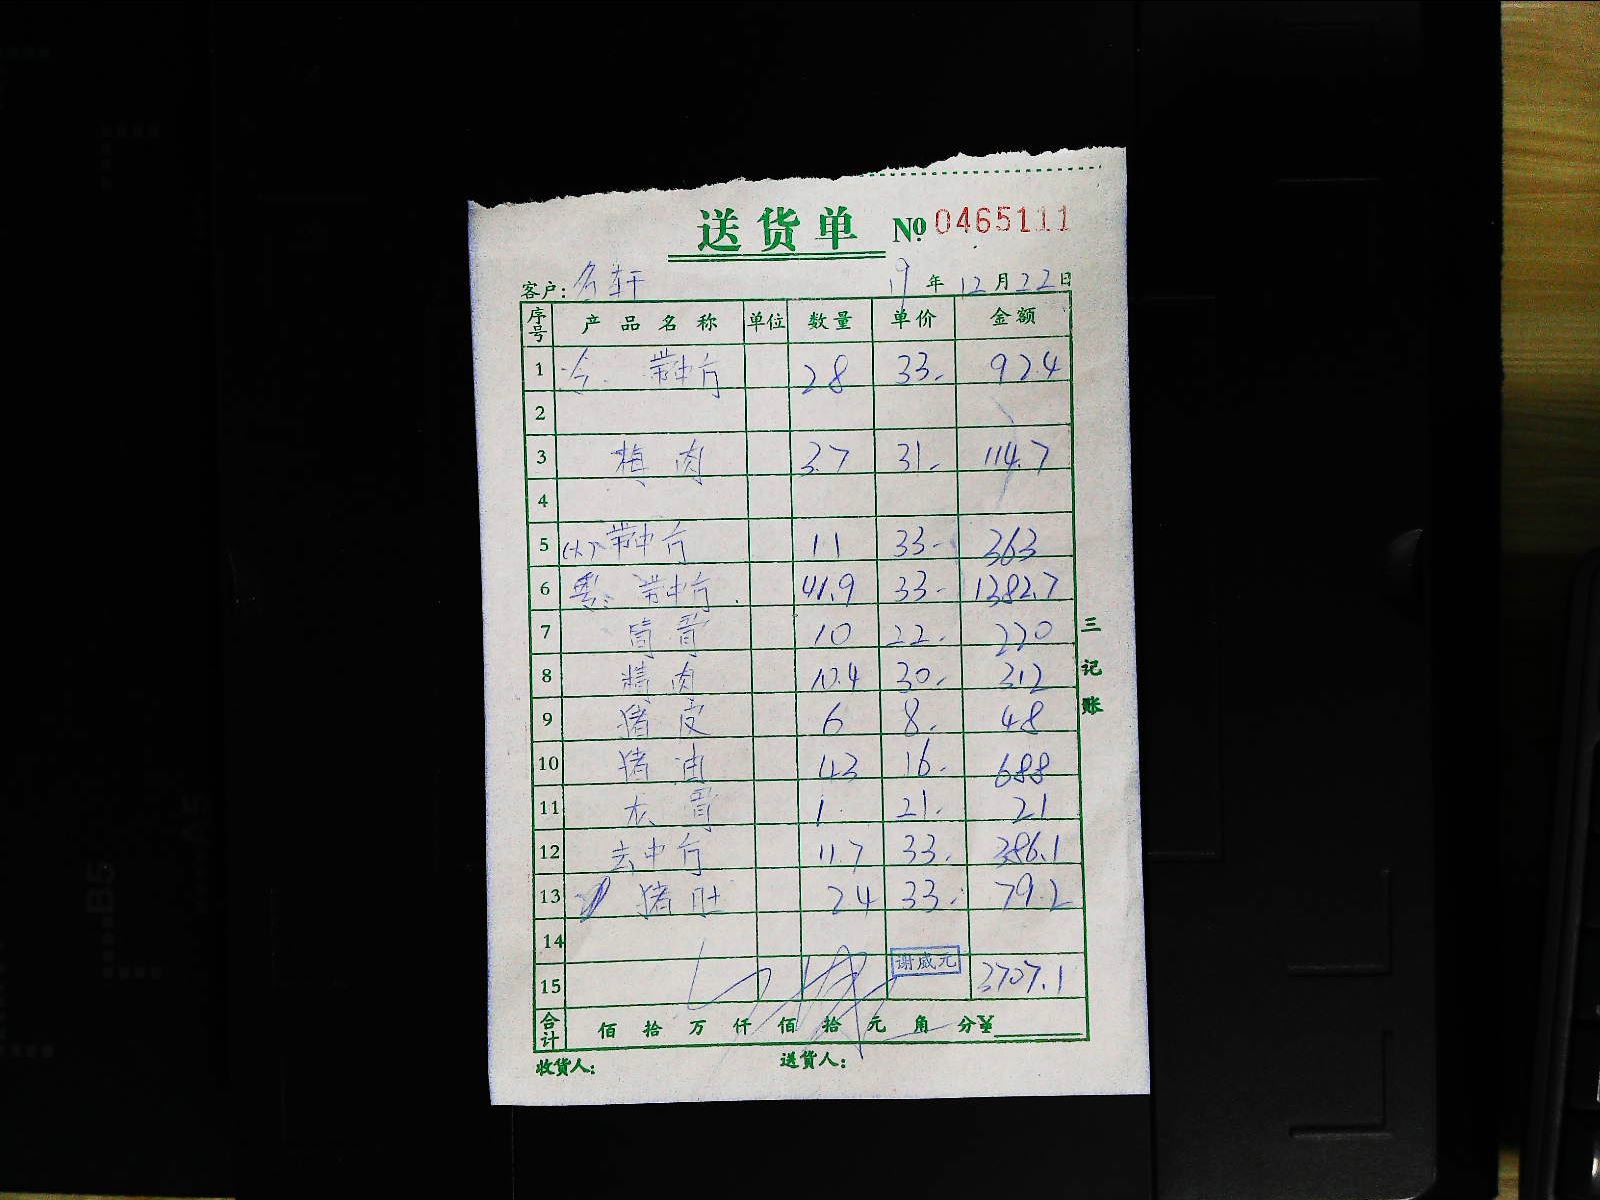 送货单 №0465111
客户: 名轩 19年12月22日
序号 产品名称 单位 数量 单价 金额
1 今. 带中方 2.8 33. 92.4
2
3 梅肉 3.7 31. 114.7
4
5 (大) 带中方 11 33- 363
6 带中方 41.9 33- 1382.7
7 骨 10 22. 220
8 精肉 10.4 30. 312
9 猪皮 6 8. 48
10 猪油 43 16. 688
11 骨 1. 21. 21
12 去中方 11.7 33. 386.1
13 猪肚 2.4 33. 79.2
14
15 谢威元 3707.1
合计 佰 拾 万 仟 佰 拾 元 角 分¥
收货人: 送货人:
三记账